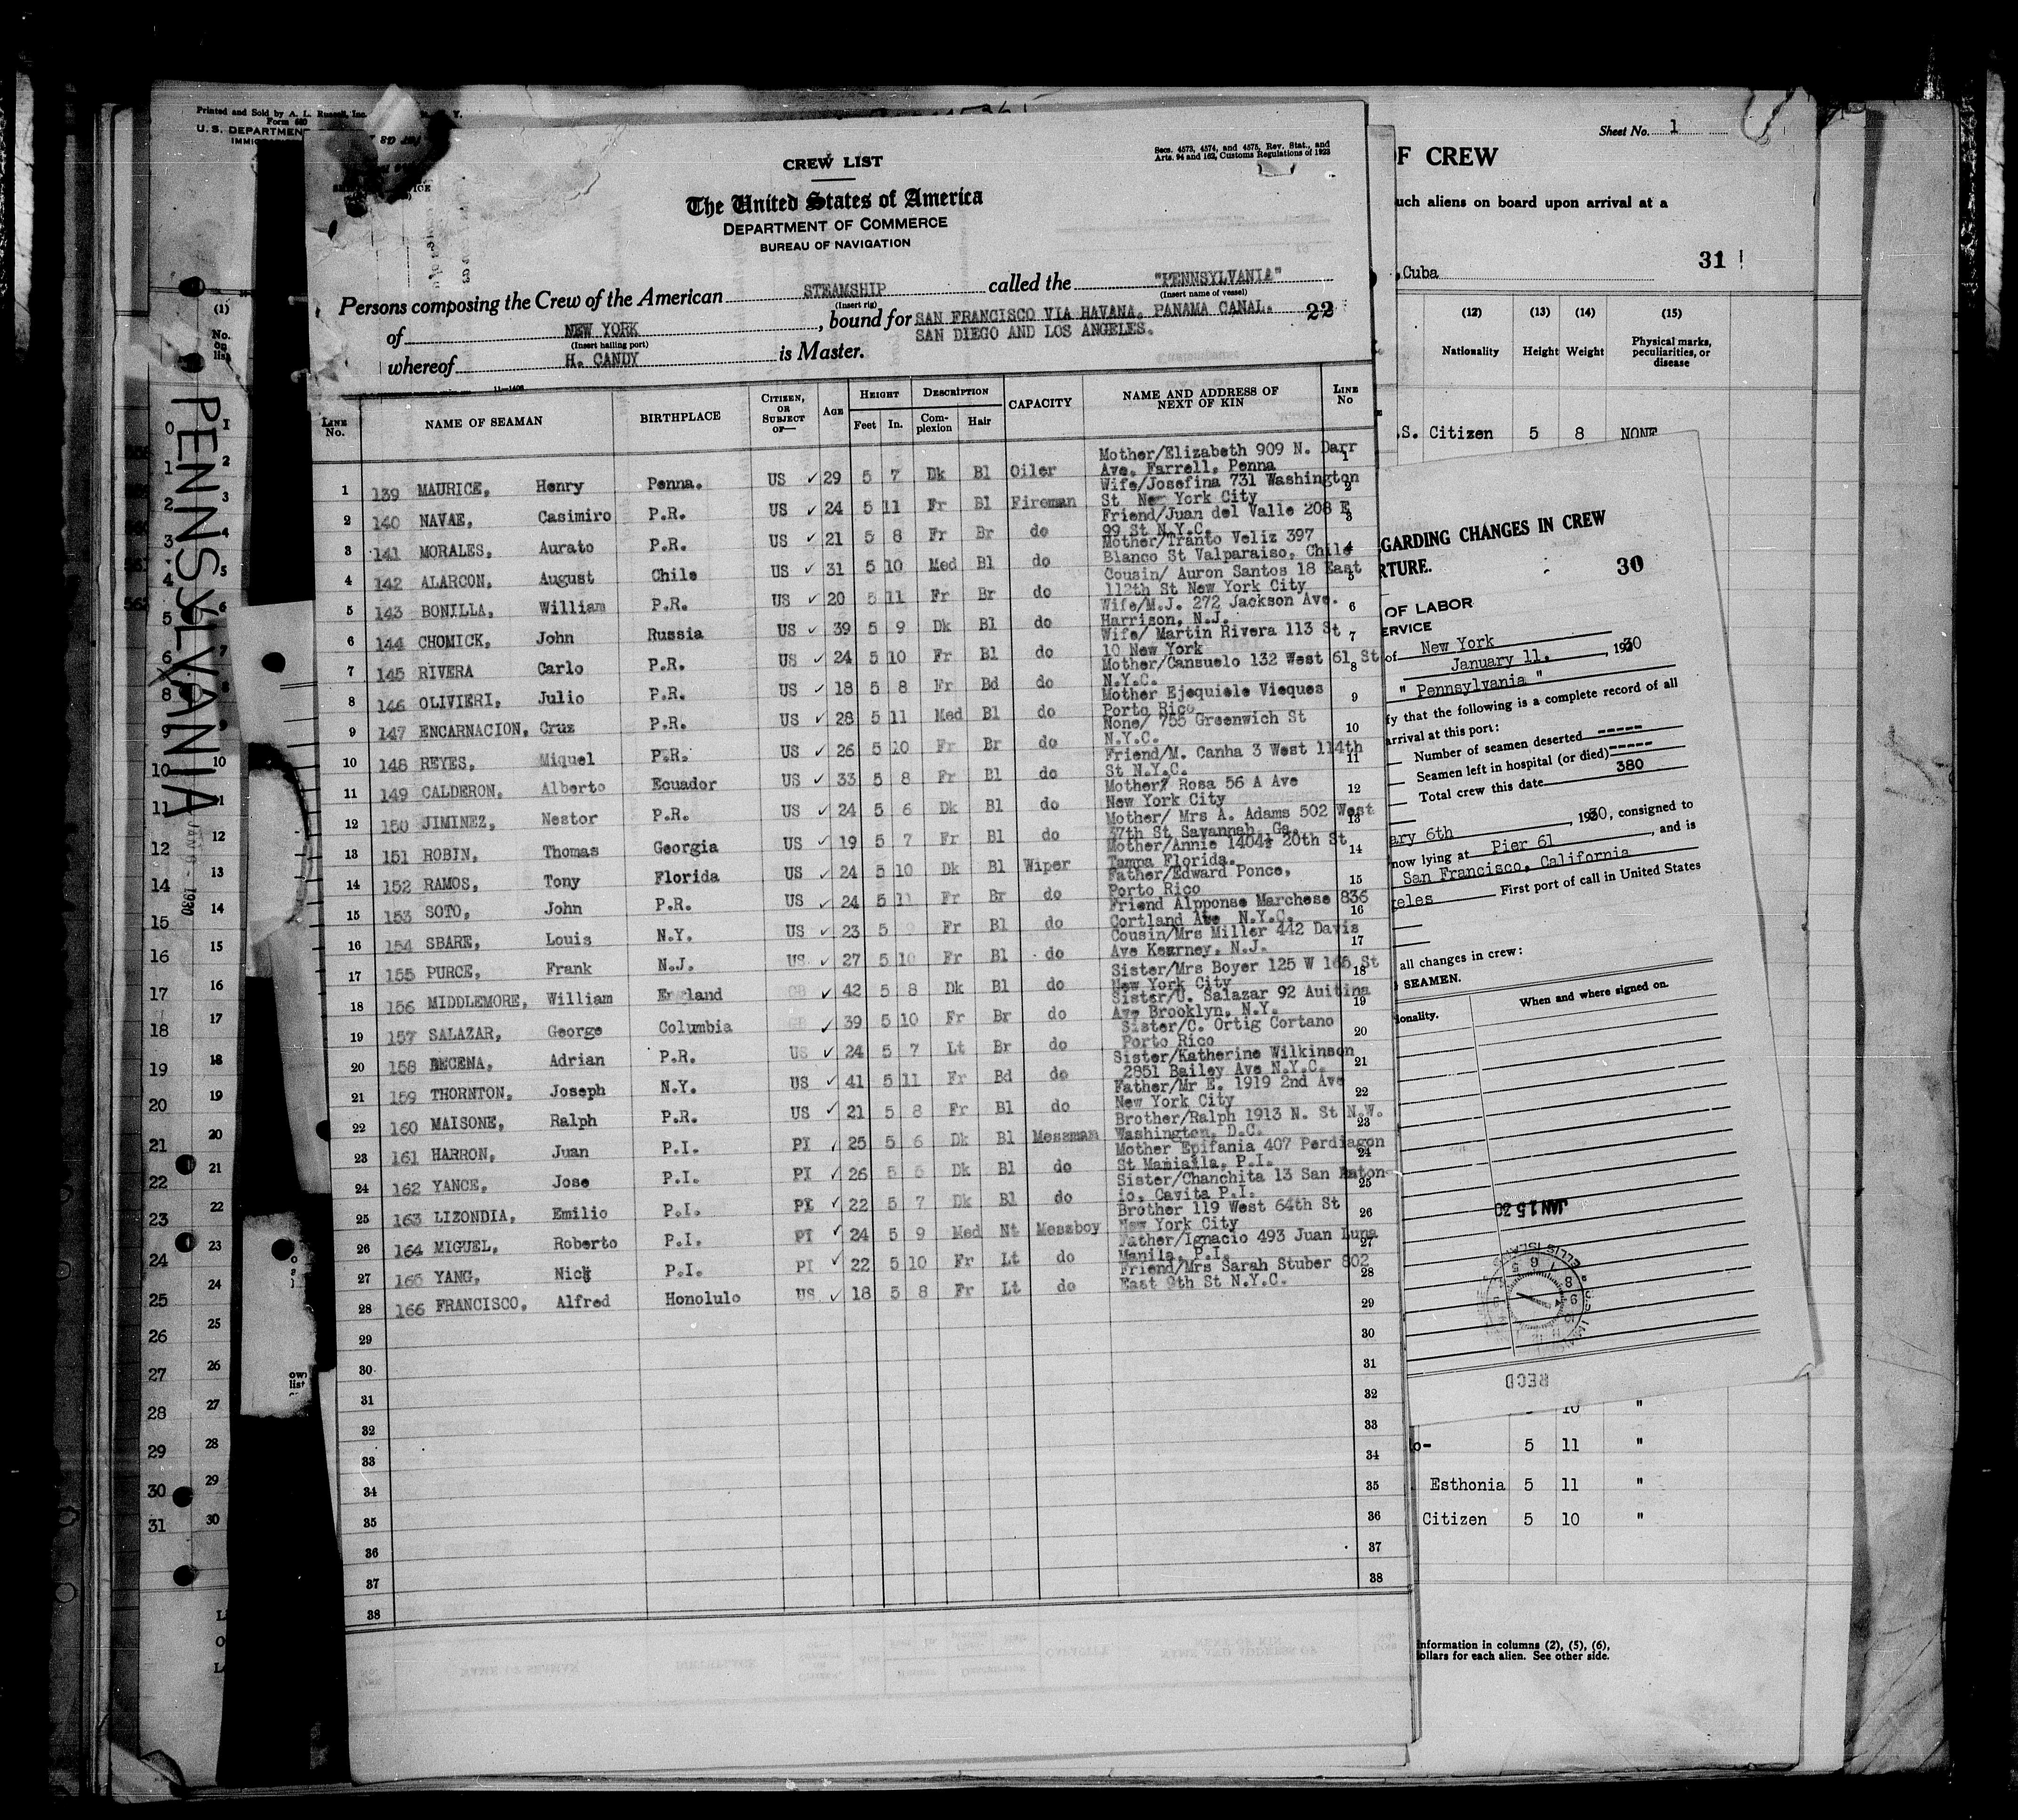 Printed and Sold by A. L. Russell, Inc.
Form 680
U. S. DEPARTMENT
CREW LIST
Secs. 4573, 4574, and 4575, Rev. Stat., and
Arts. 94 and 162, Customs Regulations of 1923
The United States of America
DEPARTMENT OF COMMERCE
BUREAU OF NAVIGATION
Persons composing the Crew of the American STEAMSHIP called the "PENNSYLVANIA"
(Insert rig) (Insert name of vessel)
of NEW YORK, bound for SAN FRANCISCO VIA HAVANA. PANAMA CANAL. 22
(Insert hailing port) SAN DIEGO AND LOS ANGELES.
whereof H. CANDY is Master.
LINE No. NAME OF SEAMAN BIRTHPLACE CITIZEN, OR SUBJECT OF— AGE HEIGHT Feet In. DESCRIPTION Complexion Hair CAPACITY NAME AND ADDRESS OF NEXT OF KIN LINE No
1 139 MAURICE, Henry Penna. US ✓ 29 5 7 Dk Bl Oiler Mother/Elizabeth 909 N. Darr Ave. Farrell, Penna 1
2 140 NAVAE, Casimiro P.R. US ✓ 24 5 11 Fr Bl Fireman Wife/Josefina 731 Washington St New York City 2
3 141 MORALES, Aurato P.R. US ✓ 21 5 8 Fr Br do Friend/Juan del Valle 208 E 99 St N.Y.C. 3
4 142 ALARCON, August Chile US ✓ 31 5 10 Med Bl do Mother/Tranto Veliz 397 Blanco St Valparaiso, Chile 4
5 143 BONILLA, William P.R. US ✓ 20 5 11 Fr Br do Cousin/ Auron Santos 18 East 112th St New York City 5
6 144 CHOMICK, John Russia US ✓ 39 5 9 Dk Bl do Wife/M.J. 272 Jackson Ave. Harrison, N.J. 6
7 145 RIVERA Carlo P.R. US ✓ 24 5 10 Fr Bl do Wife/ Martin Rivera 113 St 10 New York 7
8 146 OLIVIERI, Julio P.R. US ✓ 18 5 8 Fr Bd do Mother/Cansuelo 132 West 61 St N.Y.C. 8
9 147 ENCARNACION, Cruz P.R. US ✓ 28 5 11 Med Bl do Mother Ejequiele Vieques Porto Rico 9
10 148 REYES, Miquel P.R. US ✓ 26 5 10 Fr Br do None/ 755 Greenwich St N.Y.C. 10
11 149 CALDERON, Alberto Ecuador US ✓ 33 5 8 Fr Bl do Friend/M. Canha 3 West 114th St N.Y.C. 11
12 150 JIMINEZ, Nestor P.R. US ✓ 24 5 6 Dk Bl do Mother/ Rosa 56 A Ave New York City 12
13 151 ROBIN, Thomas Georgia US ✓ 19 5 7 Fr Bl do Mother/ Mrs A. Adams 502 West 37th St Savannah, Ga. 13
14 152 RAMOS, Tony Florida US ✓ 24 5 10 Dk Bl Wiper Mother/Annie 1404½ 20th St Tampa Florida. 14
15 153 SOTO, John P.R. US ✓ 24 5 11 Fr Br do Father/Edward Ponce, Porto Rico 15
16 154 SBARE, Louis N.Y. US ✓ 23 5 Fr Bl do Friend Alpponse Marchese 836 Cortland Ave N.Y.C. 16
17 155 PURCE, Frank N.J. US ✓ 27 5 10 Fr Bl do Cousin/Mrs Miller 442 Davis Ave Kearney, N.J. 17
18 156 MIDDLEMORE, William England GB ✓ 42 5 8 Dk Bl do Sister/Mrs Boyer 125 W 166 St New York City 18
19 157 SALAZAR, George Columbia ✓ 39 5 10 Fr Br do Sister/U. Salazar 92 Auitina Ave Brooklyn, N.Y. 19
20 158 BECENA, Adrian P.R. US ✓ 24 5 7 Lt Br do Sister/C. Ortig Cortano Porto Rico 20
21 159 THORNTON, Joseph N.Y. US ✓ 41 5 11 Fr Bd do Sister/Katherine Wilkinson 2851 Bailey Ave N.Y.C. 21
22 160 MAISONE, Ralph P.R. US ✓ 21 5 8 Fr Bl do Father/Mr E. 1919 2nd Ave New York City 22
23 161 HARRON, Juan P.I. PI ✓ 25 5 6 Dk Bl Messman Brother/Ralph 1913 N. St N.W. Washington, D.C. 23
24 162 YANCE, Jose P.I. PI ✓ 26 5 5 Dk Bl do Mother Epifania 407 Perdiagon St Manialla, P.I. 24
25 163 LIZONDIA, Emilio P.I. PI ✓ 22 5 7 Dk Bl do Sister/Chanchita 13 San Antonio, Cavita P.I. 25
26 164 MIGUEL, Roberto P.I. PI ✓ 24 5 9 Med Nt Messboy Brother 119 West 64th St New York City 26
27 165 YANG, Nick P.I. PI ✓ 22 5 10 Fr Lt do Father/Ignacio 493 Juan Luna Manila, P.I. 27
28 166 FRANCISCO, Alfred Honolulo US ✓ 18 5 8 Fr Lt do Friend/Mrs Sarah Stuber 802 East 9th St N.Y.C. 28
29 29
30 30
31 31
32 32
33 33
34 34
35 35
36 36
37 37
38 38
PENNSYLVANIA
JAN 6 - 1930
Sheet No. 1
OF CREW
uch aliens on board upon arrival at a
Cuba 31
(12) (13) (14) (15)
Nationality Height Weight Physical marks, peculiarities, or disease
.S. Citizen 5 8 NONE
GARDING CHANGES IN CREW
RTURE.
30
OF LABOR
ERVICE
of New York
January 11. , 1930
" Pennsylvania "
fy that the following is a complete record of all
arrival at this port:
Number of seamen deserted -----
Seamen left in hospital (or died) -----
Total crew this date 380
ary 6th , 1930, consigned to
now lying at Pier 61 , and is
San Francisco, California
geles First port of call in United States
all changes in crew:
SEAMEN.
ionality. When and where signed on.
ELLIS ISLAND
RECD
10 "
5 11 "
Esthonia 5 11 "
Citizen 5 10 "
information in columns (2), (5), (6),
ollars for each alien. See other side.